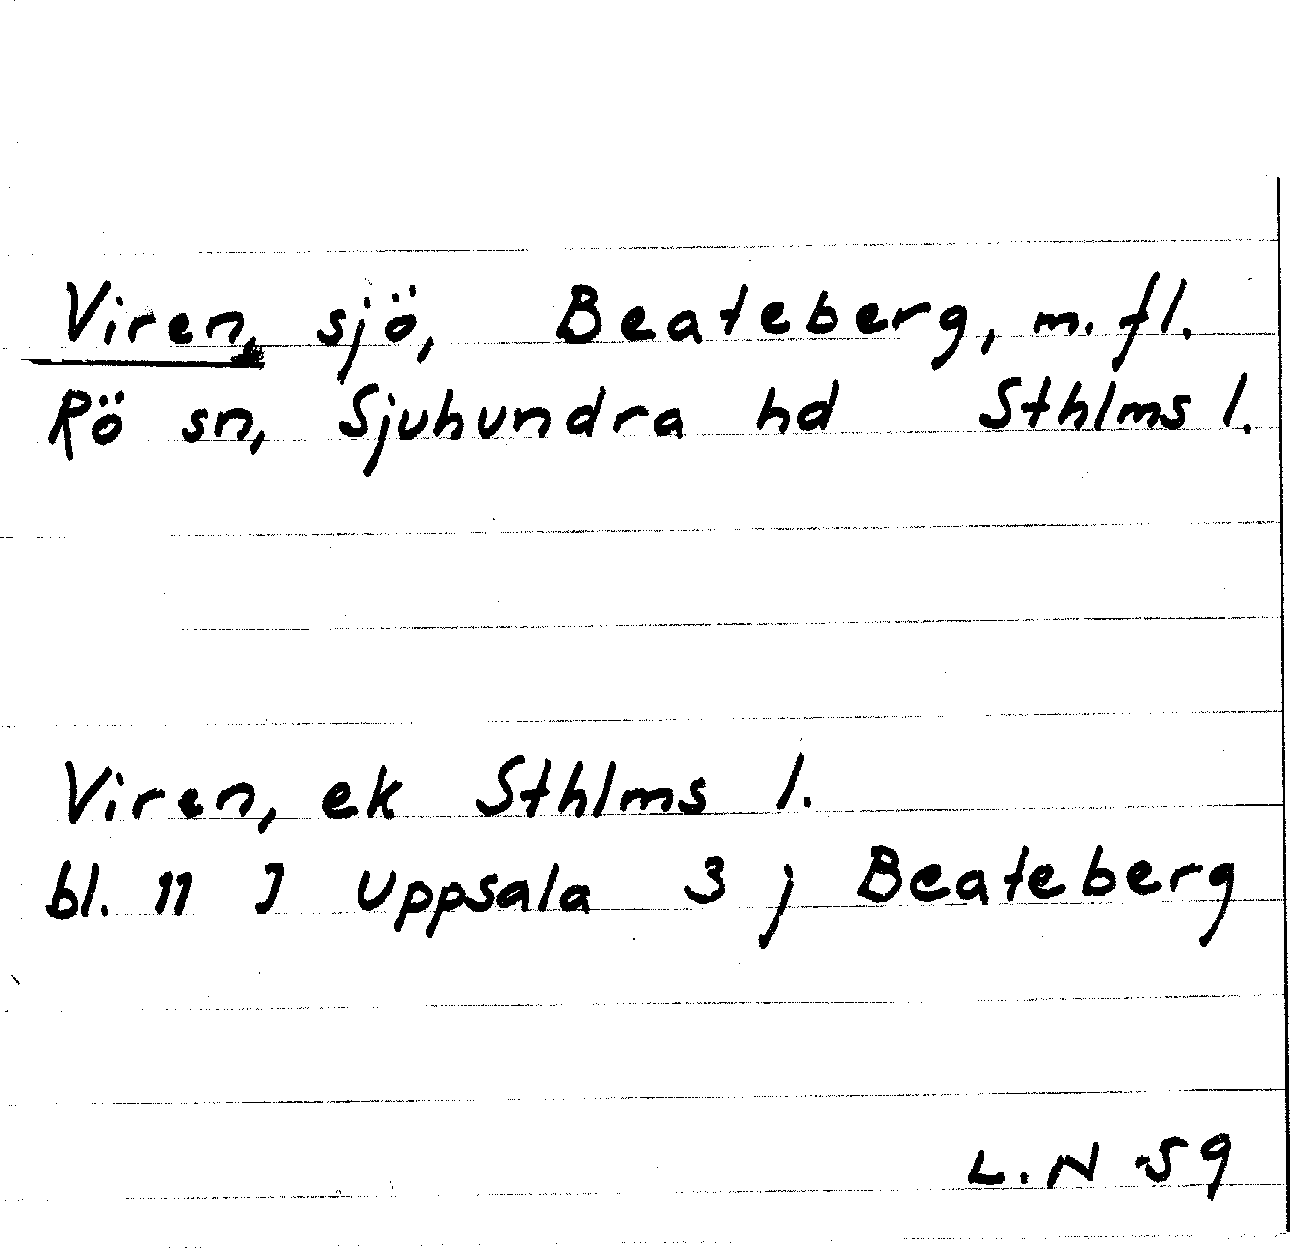 Viren, sjö, Beateberg, m. fl.
Rö sn, Sjuhundra hd Sthlms l.
Viren, ek Sthlms l.
bl. 11 I Uppsala 3 j Beateberg
L.N 59